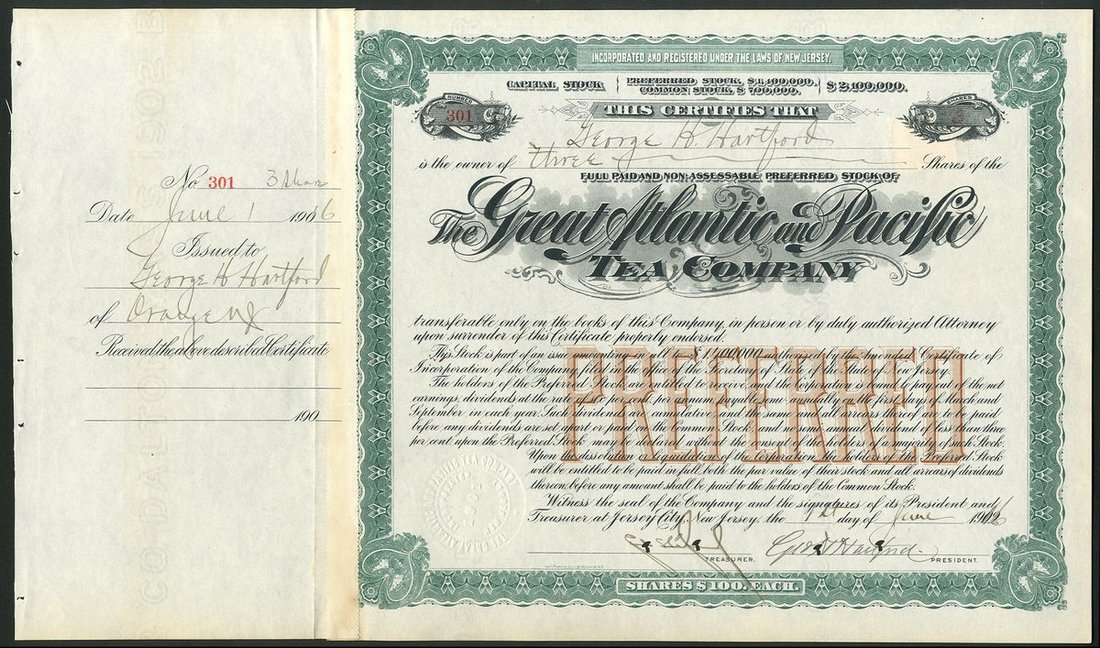 No 301 3 shares
Date June 1 1906
Issued to
George H Hartford
of Orange NJ
Received the above described Certificate
190
INCORPORATED AND REGISTERED UNDER THE LAWS OF NEW JERSEY.
CAPITAL STOCK
PREFERRED STOCK, $1,400,000.
COMMON STOCK, $700,000.
$2,100,000.
NUMBER
301
THIS CERTIFIES THAT
SHARES
3
George H. Hartford
is the owner of three Shares of the
FULL PAID AND NON-ASSESSABLE PREFERRED STOCK OF
The Great Atlantic and Pacific
TEA COMPANY
transferable only on the books of this Company, in person or by duly authorized Attorney
upon surrender of this Certificate properly endorsed.
This Stock is part of an issue amounting in all to $1,400,000 authorized by the Amended Certificate of
Incorporation of the Company, filed in the office of the Secretary of State of the State of New Jersey.
The holders of the Preferred Stock are entitled to receive, and the Corporation is bound to pay out of the net
earnings, dividends at the rate of per cent. per annum, payable semi-annually on the first days of March and
September in each year. Such dividends are cumulative and the same and all arrears thereof are to be paid
before any dividends are set apart or paid on the Common Stock, and no semi-annual dividend of less than three
per cent. upon the Preferred Stock may be declared without the consent of the holders of a majority of such Stock.
Upon the dissolution or liquidation of the Corporation, the holders of the Preferred Stock
will be entitled to be paid in full both the par value of their stock and all arrears of dividends
thereon, before any amount shall be paid to the holders of the Common Stock.
PREFERRED
Witness the seal of the Company and the signatures of its President and
Treasurer at Jersey City, New Jersey, the 1st day of June 1906
Geo H Hartford
TREASURER.
PRESIDENT.
SHARES $100. EACH.